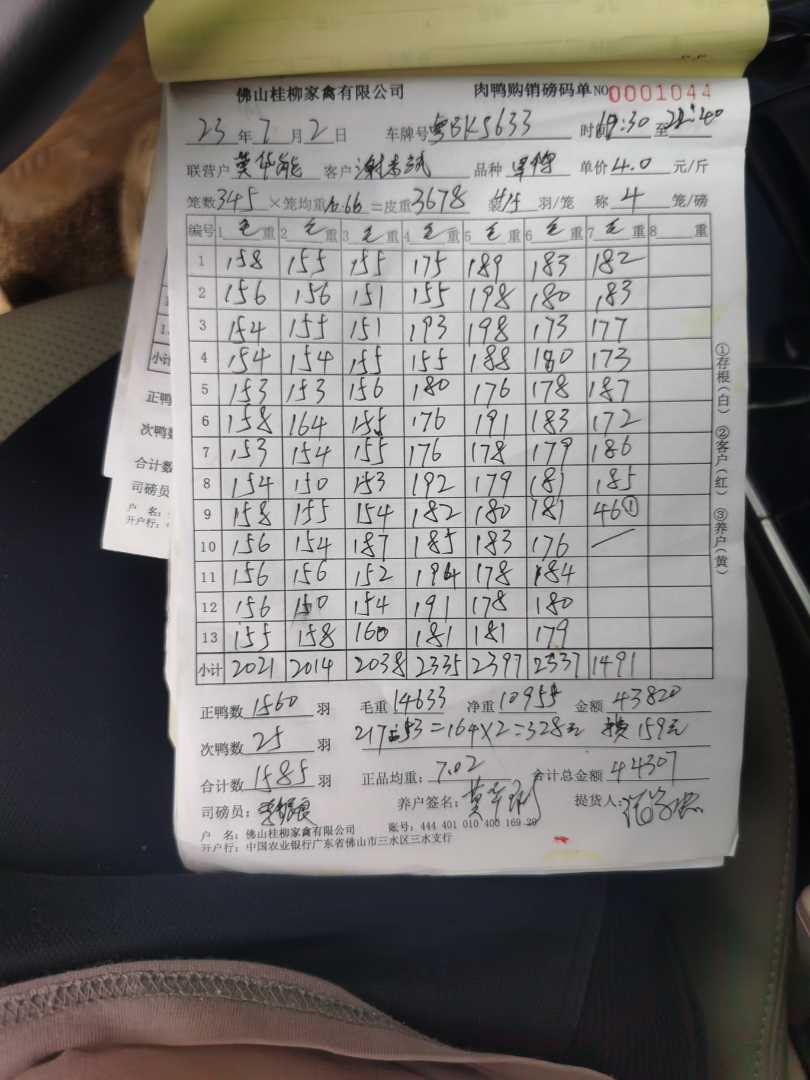 佛山桂柳家禽有限公司 肉鸭购销磅码单 NO 0001044
23年7月2日 车牌号粤BK5633 时间19:30至22:40
联营户 莫华能 客户 品种 单价4.0元/斤
笼数345×笼均重10.66=皮重3678 装 羽/笼 称4笼/磅
编号 1毛重 2毛重 3毛重 4毛重 5毛重 6毛重 7毛重 8 重
1 158 155 155 175 189 183 182
2 156 156 151 155 198 180 183
3 154 155 151 193 198 173 177
4 154 154 155 155 188 180 173
5 153 153 156 180 176 178 187
6 158 164 155 176 191 183 172
7 153 154 155 176 178 179 186
8 154 150 153 192 179 181 185
9 158 155 154 182 180 181 46①
10 156 154 187 185 183 176
11 156 156 152 194 178 184
12 156 150 154 191 178 180
13 155 158 160 181 181 179
小计 2021 2014 2038 2335 2397 2337 1491
正鸭数1560羽 毛重14633 净重10955 金额43820
217-53=164×2=328元 159元
次鸭数25羽
合计数1585羽 正品均重:7.02 合计总金额44307
司磅员: 养户签名: 提货人:
户 名:佛山桂柳家禽有限公司 账号:444 401 010 400 169 29
开户行:中国农业银行广东省佛山市三水区三水支行
①存根(白) ②客户(红) ③养户(黄)
小计
正鸭
次鸭数
合计数
司磅员
户 名:
开户行: